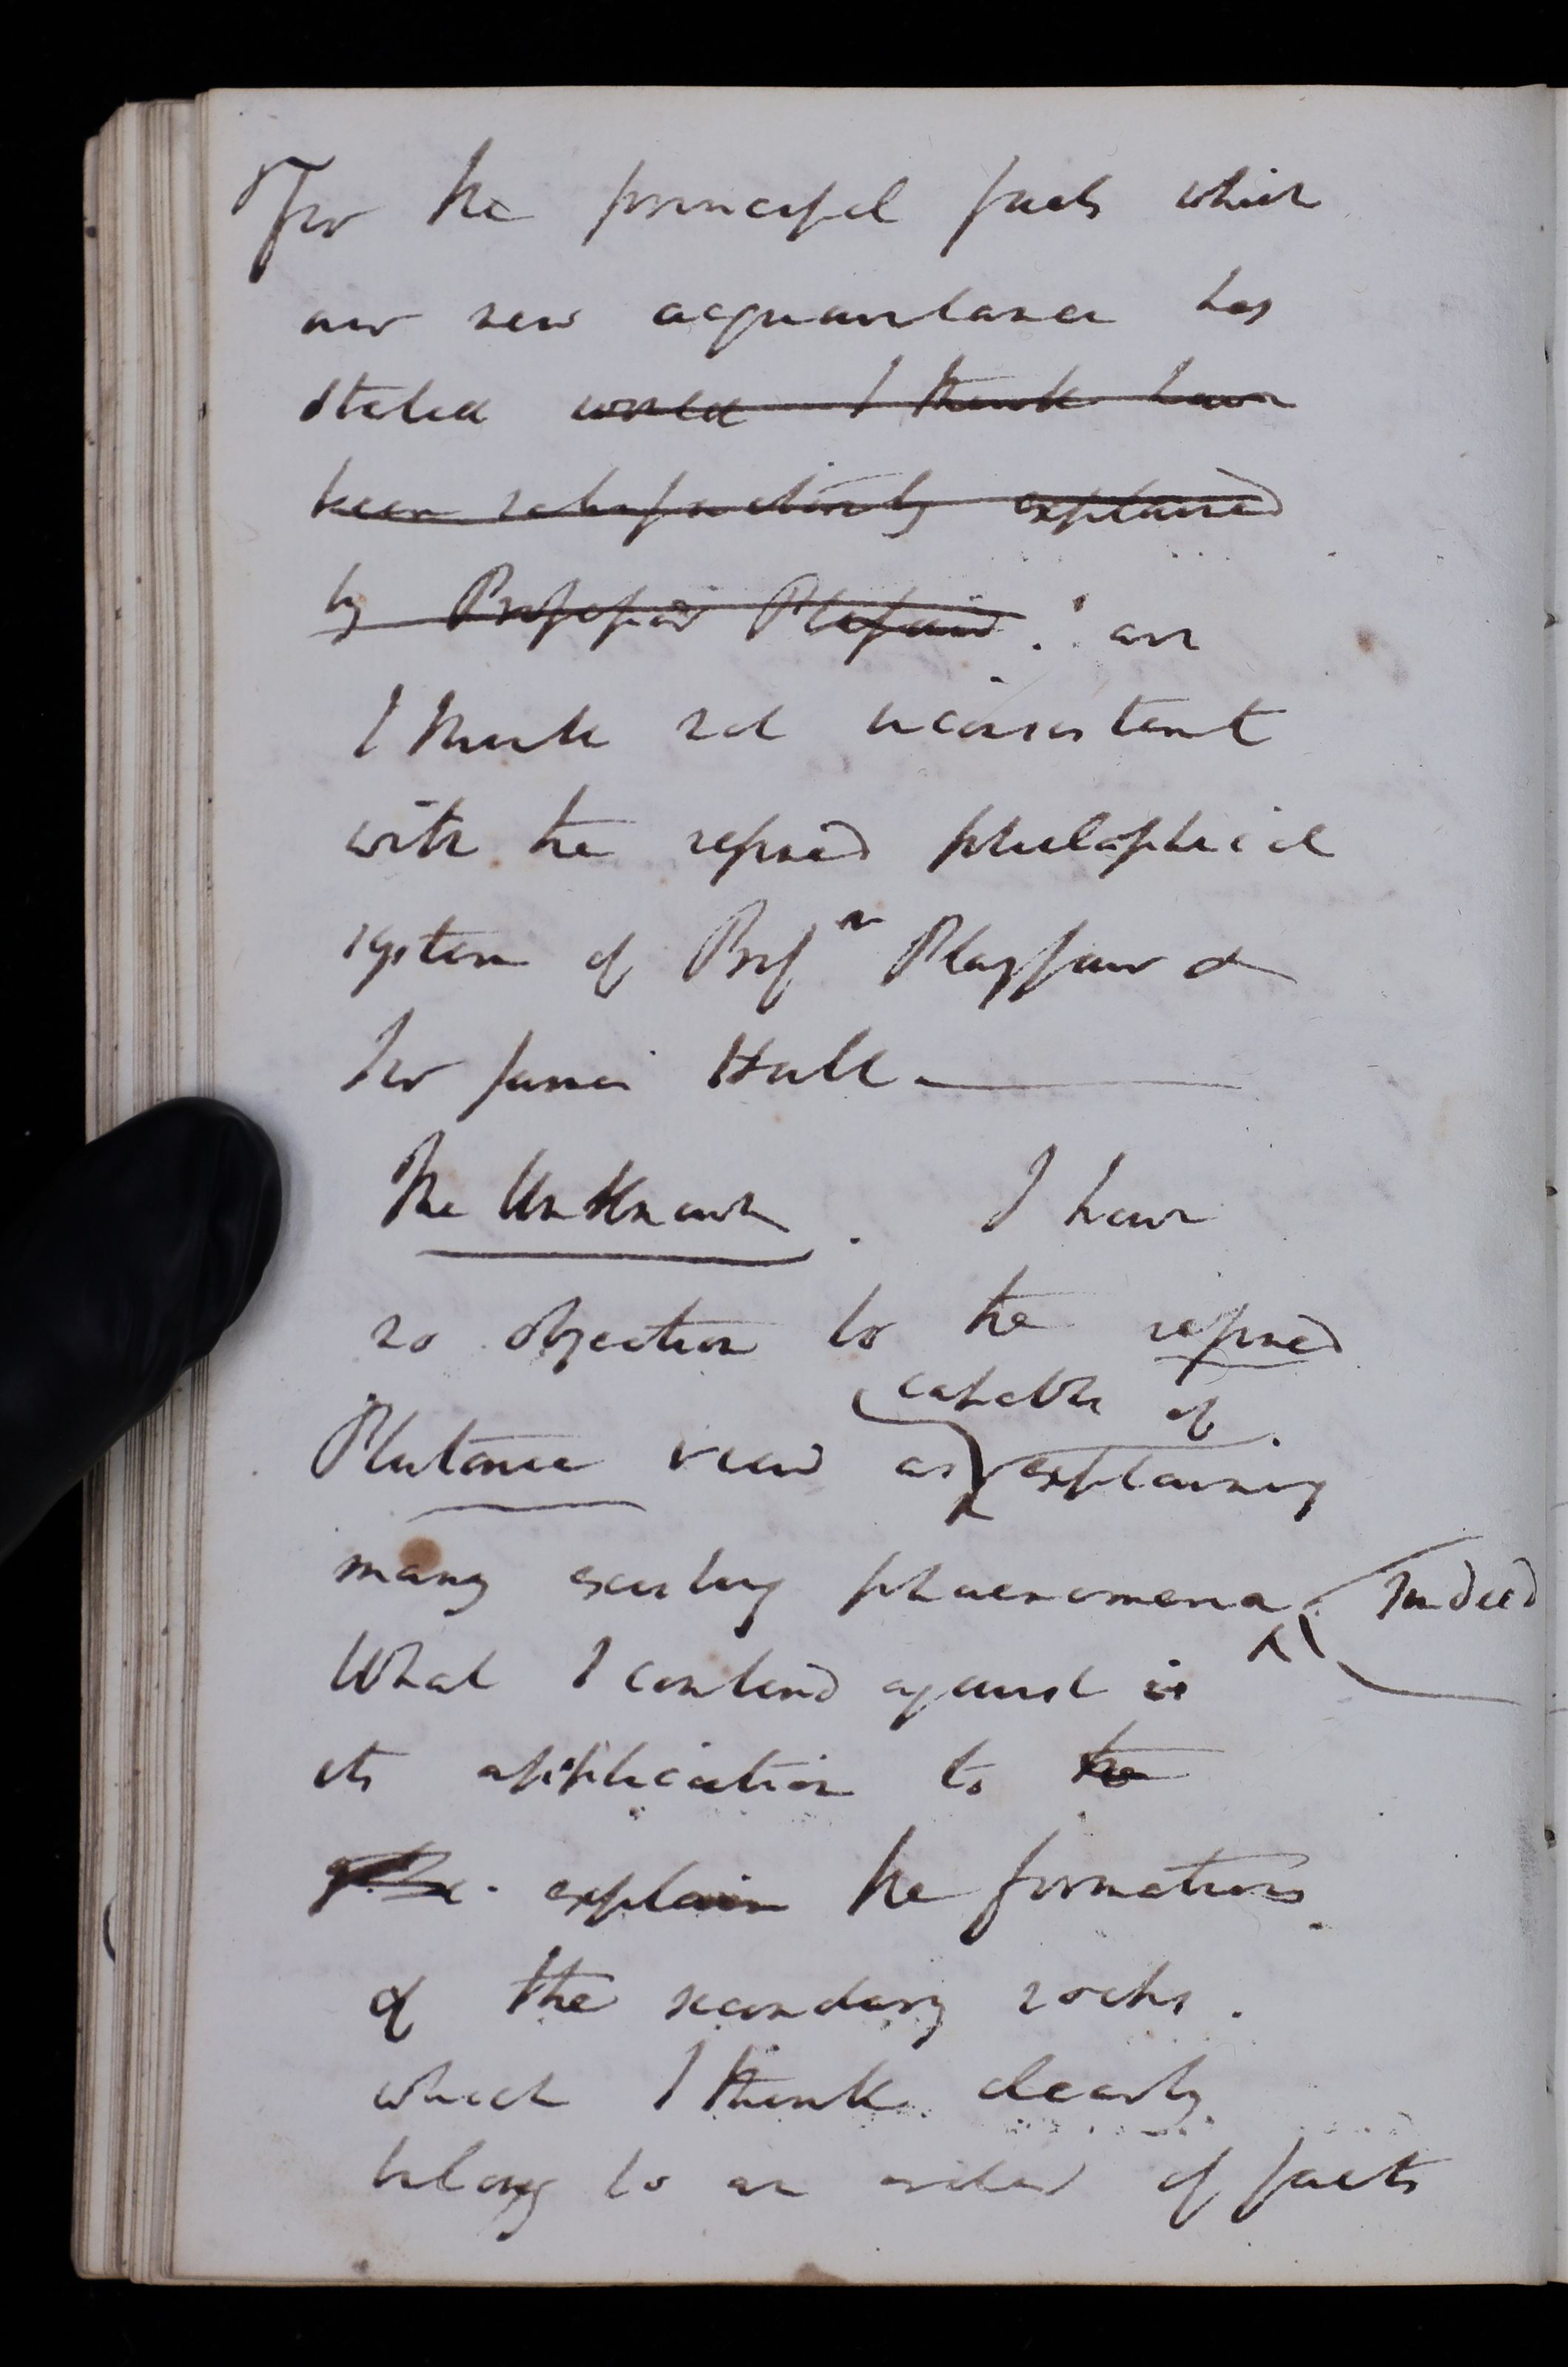 For the principal facts which
our new acquaintance has
stated would I think have
been satisfactorily explained
by Professor Playfair. : are
I think not inconsistent
with the refined philosophical
system of Prof.r Playfair &
Sir James Hall. —
The Unknown. I have
no objection to the refined
capable of
Plutonic view as explaining
many existing phaenomena. Indeed
What I contend against is
its application to the
explain the formations
of the secondary rocks.
which I think clearly
belong to an order of facts